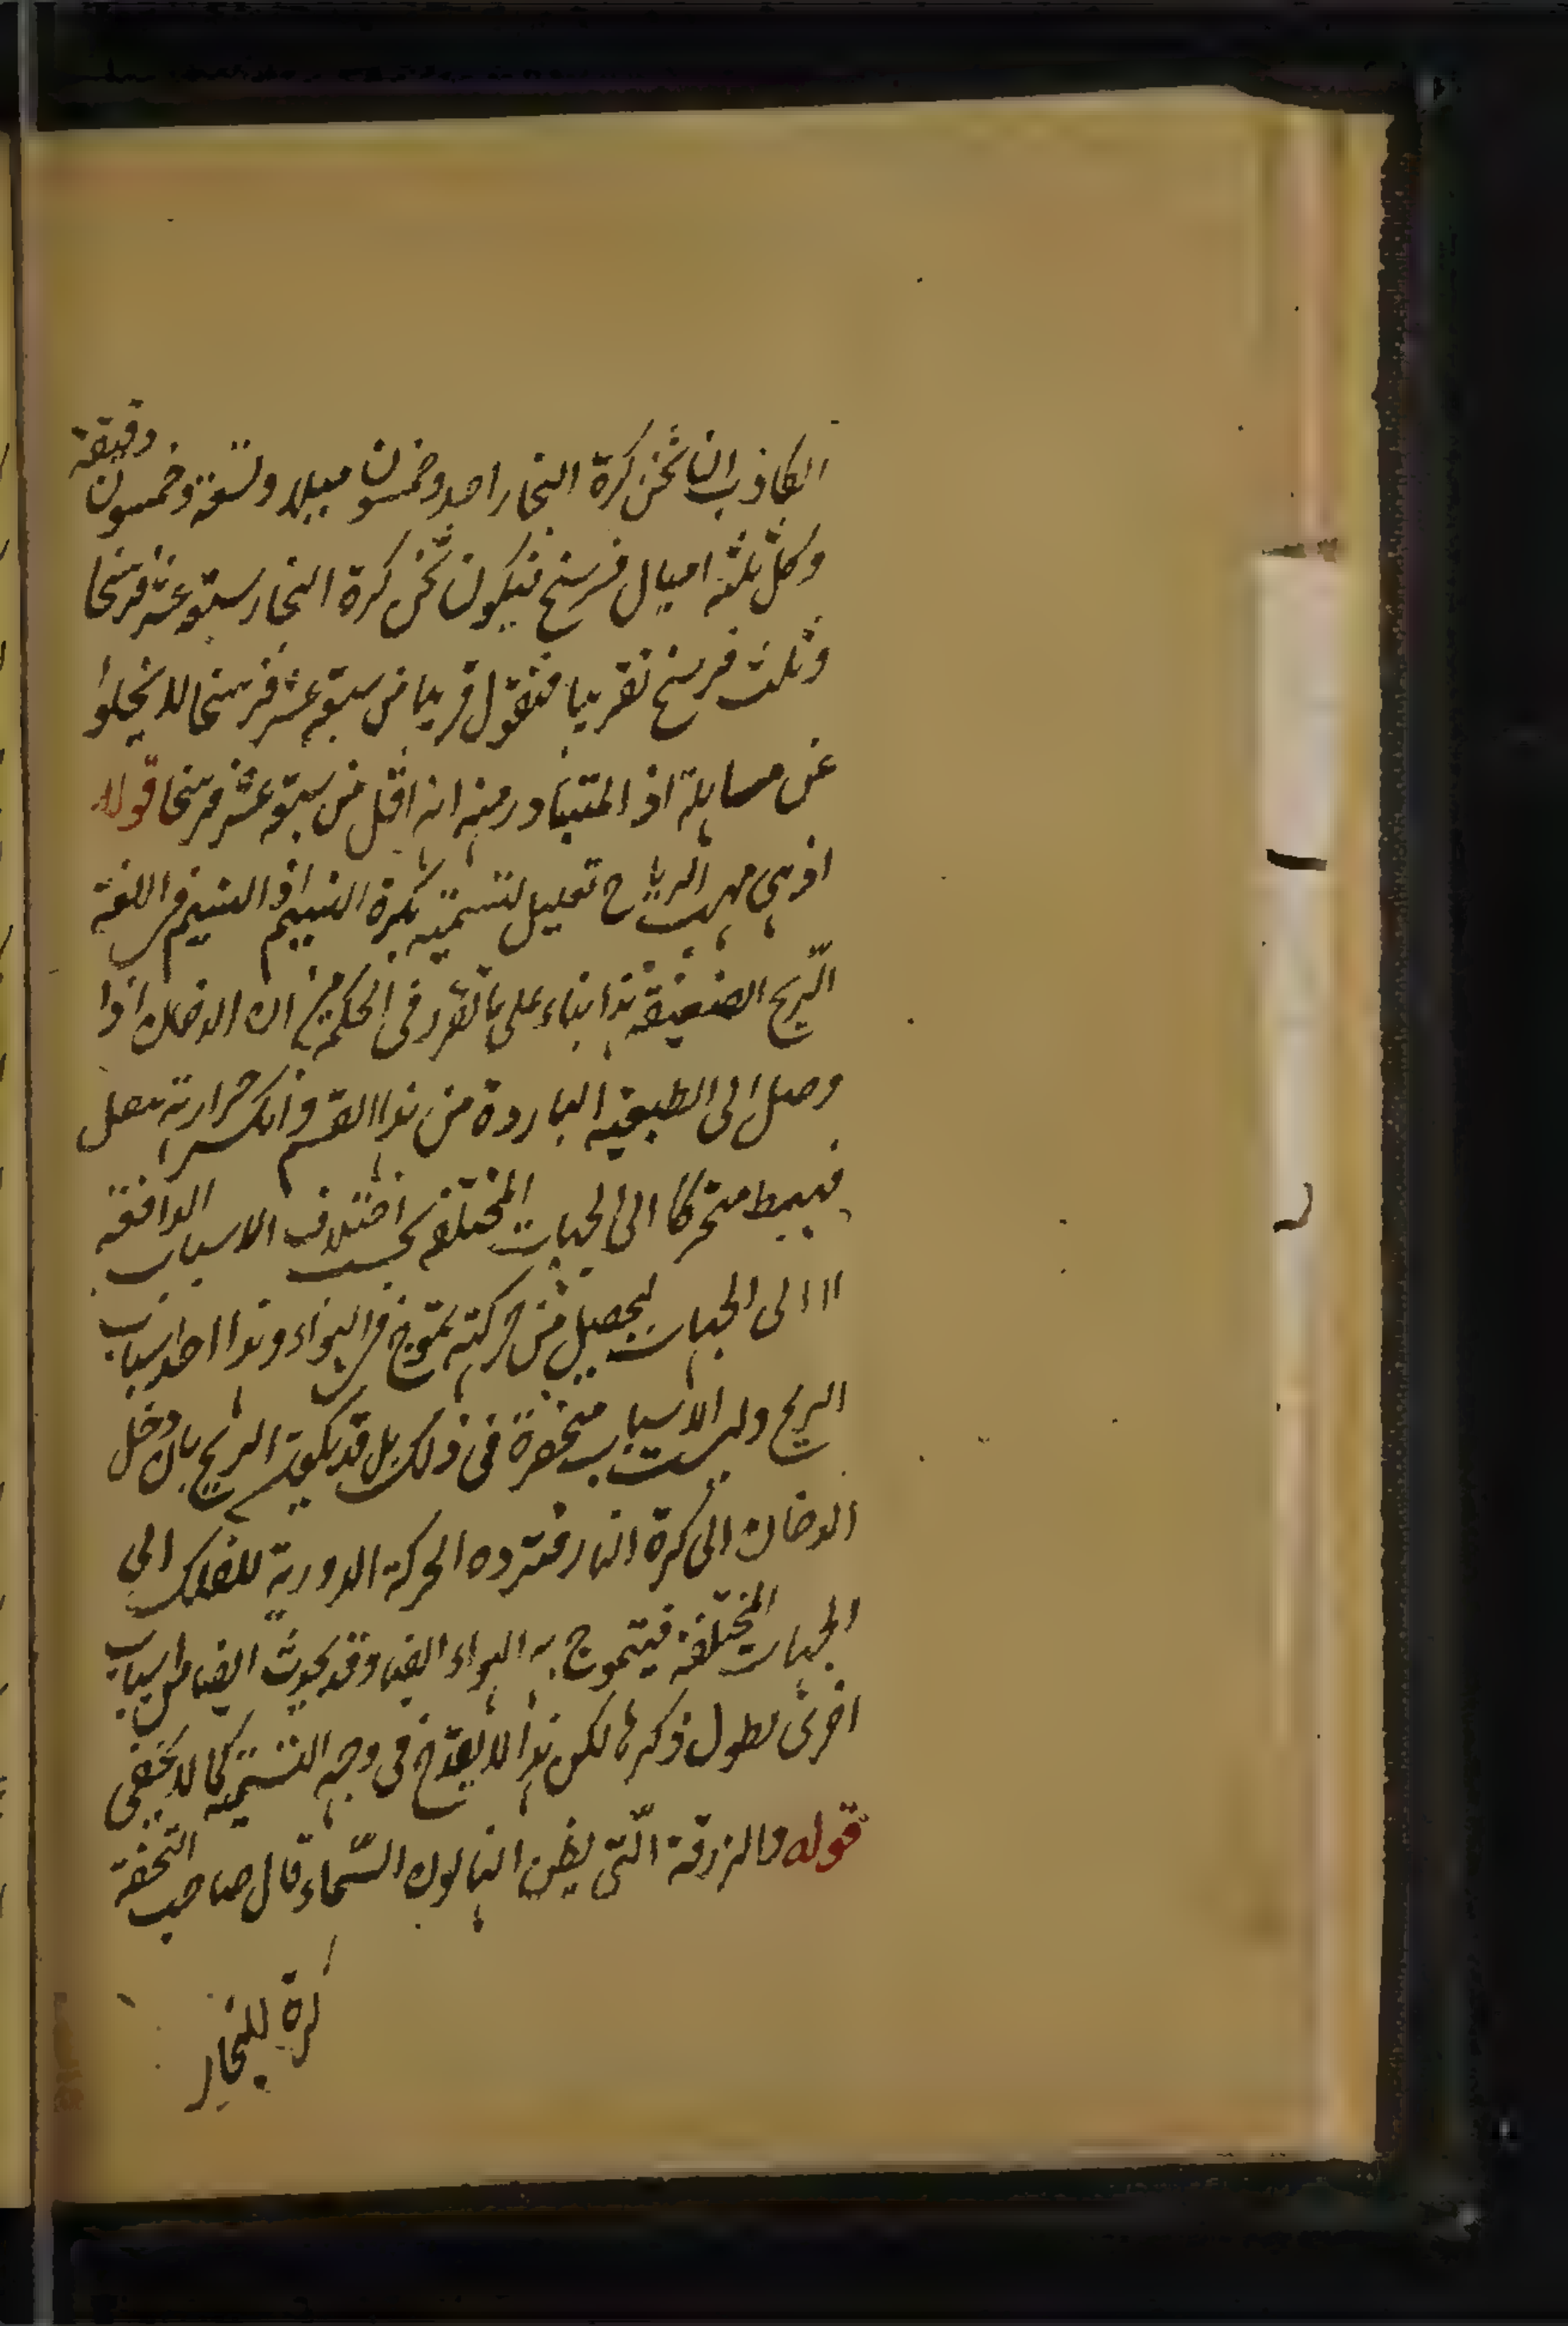 الكاذب ان ثخن كرة البخار احد وخمسون ميلا وتسعة وخمسون دقيقة
وكل ثلثة اميال فرسخ فيكون ثخن كرة البخار سبعة عشر فرسخا
وثلث فرسخ تقريبا فنقول قريبا من سبعة عشر فرسخا لا يخلوا
عن مساهلة اذ المتبادر منه انه اقل من سبعة عشر فرسخا قوله
اذ هي مهب الرياح تعليل لتسميته بكرة النسيم اذ النسيم في اللغة
الريح الضعيفة هذا بناء على ما تقرر في الحكمة من ان الدخان اذا
وصل الى الطبقة الباردة من هذا القسم وانكسر حرارته ثقل
فيهبط متحركا الى الجهات المختلفة بحسب اختلاف الاسباب الدافعة
الى الجهات ليحصل من حركته تموج في الهواء وهذا احد اسباب
الريح وليست الاسباب منحصرة في ذلك بل قد يكون الريح بان دخل
الدخان الى كرة النار فترده الحركة الدورية للفلك الى
الجهات المختلفة فيتموج به الهواء ايضا وقد يحدث ايضا من اسباب
اخرى يطول ذكرها لكن هذا لا يقدح في وجه التسمية كما لا يخفى
قوله والزرقة التي يظن انها لون السماء قال صاحب التحفة
كرة البخار